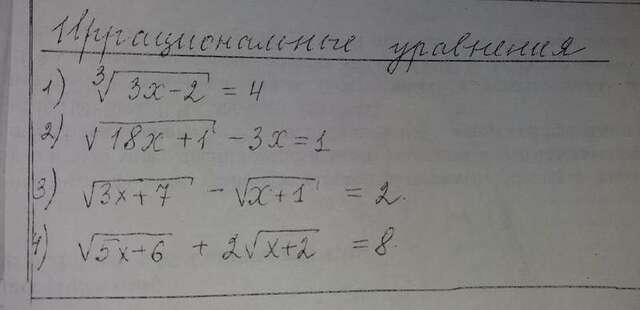 Иррациональные уравнения
1) ∛(3x-2) = 4
2) √(18x+1) - 3x = 1
3) √(3x+7) - √(x+1) = 2.
4) √(5x+6) + 2√(x+2) = 8.